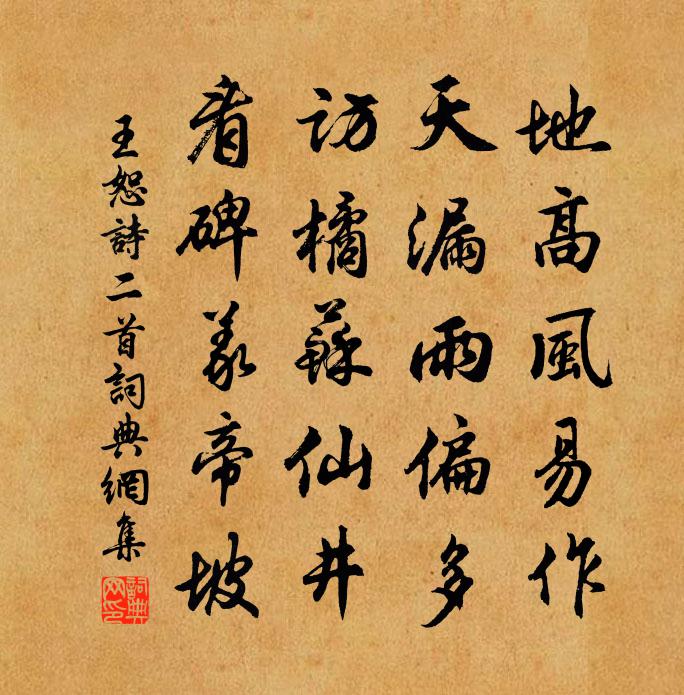 地髙風易作
天漏雨偏多
訪橘蘇仙井
看碑義帝坡
王恕詩二首詞典網集
詞典網印